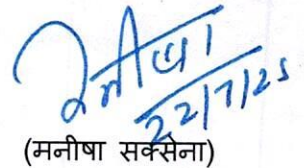 मनीषा
22/7/25
(मनीषा सक्सेना)